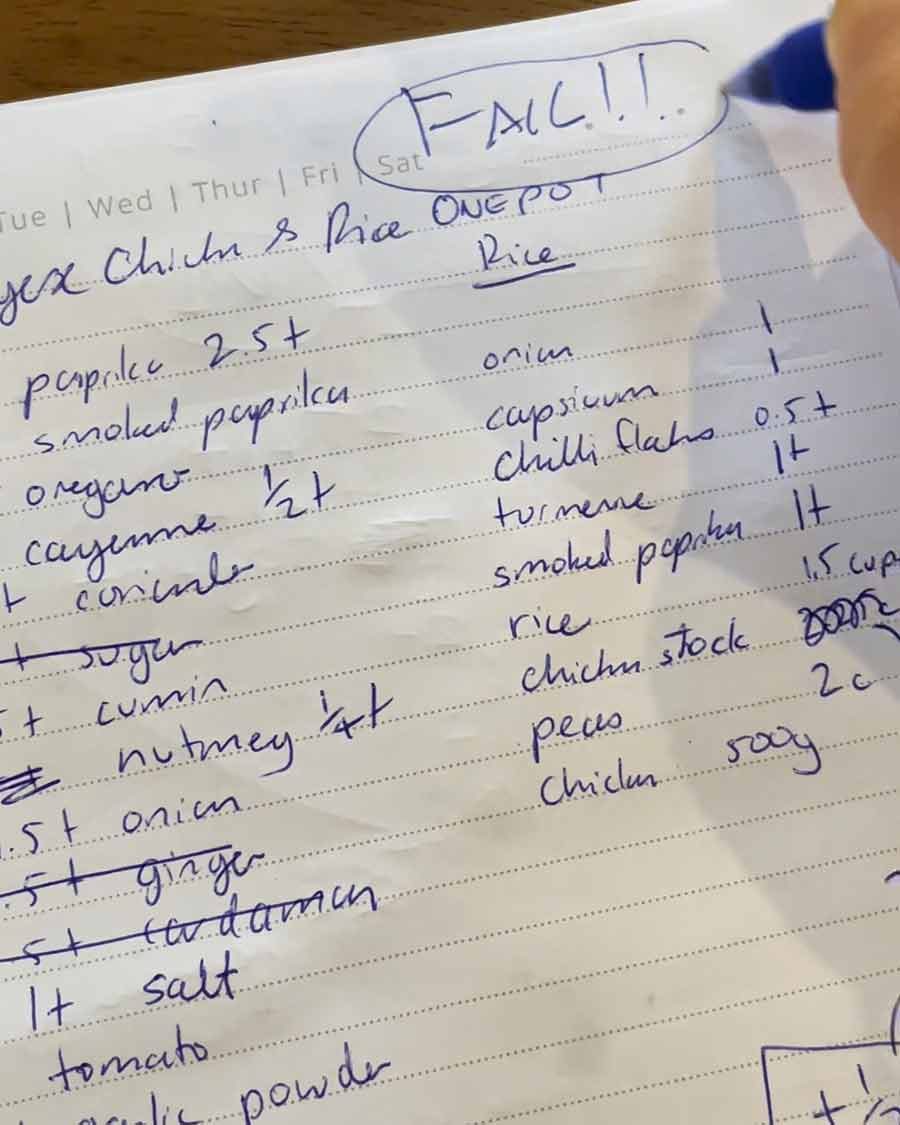 FAIL!!.
Tue | Wed | Thur | Fri | Sat
Chicken & Rice ONE POT
Rice
paprika 2.5t
smoked paprika
oregano
cayenne 1/2t
t coriander
t sugar
5t cumin
nutmeg 1/4t
.5t onion
.5t ginger
5t cardamon
1t salt
tomato
garlic powder
onion 1
capsicum 1
chilli flakes 0.5t
turmeric 1t
smoked paprika 1t
rice 1.5 cup
chicken stock
peas 2c
chicken 500g